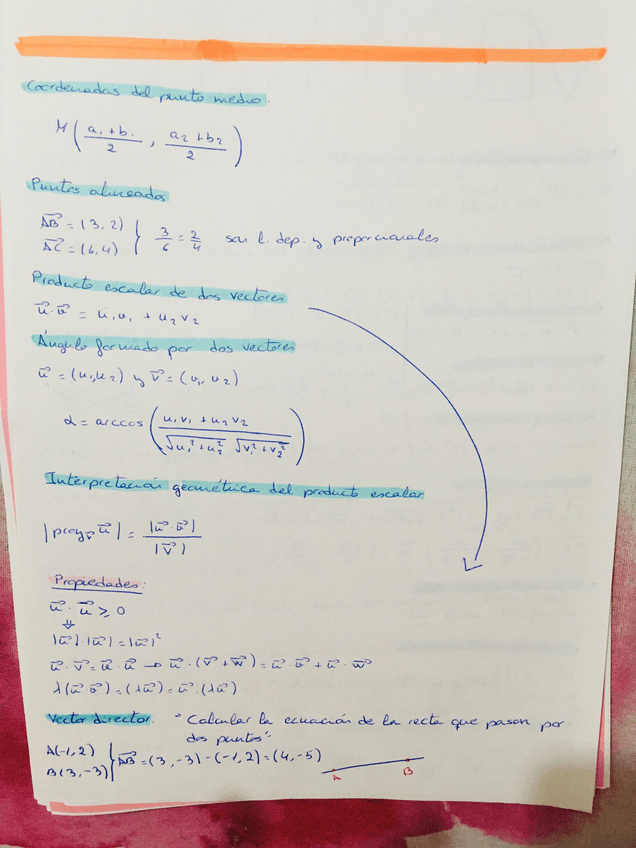 Coordenadas del punto medio.
M( (a₁+b₁)/2 , (a₂+b₂)/2 )
Puntos alineados
AB⃗ = (3,2) } 3/6 = 2/4 son l. dep. y proporcionales
AC⃗ = (6,4)
Producto escalar de dos vectores
u⃗·v⃗ = u₁v₁ + u₂v₂
Ángulo formado por dos vectores
u⃗ = (u₁,u₂) y v⃗ = (v₁, v₂)
α = arccos( (u₁v₁ + u₂v₂) / (√(u₁²+u₂²) √(v₁²+v₂²)) )
Interpretación geométrica del producto escalar
|proy_v⃗ u⃗| = |u⃗·v⃗| / |v⃗|
Propiedades:
u⃗ · u⃗ ≥ 0
⇓
|u⃗|·|u⃗| = |u⃗|²
u⃗·v⃗ = v⃗·u⃗ → u⃗·(v⃗+w⃗) = u⃗·v⃗ + u⃗·w⃗
λ(u⃗·v⃗) = (λu⃗) = u⃗·(λu⃗)
Vector director. "Calcular la ecuación de la recta que pasan por
dos puntos"
A(-1,2) } AB⃗ = (3,-3)-(-1,2) = (4,-5)
B(3,-3)
A B